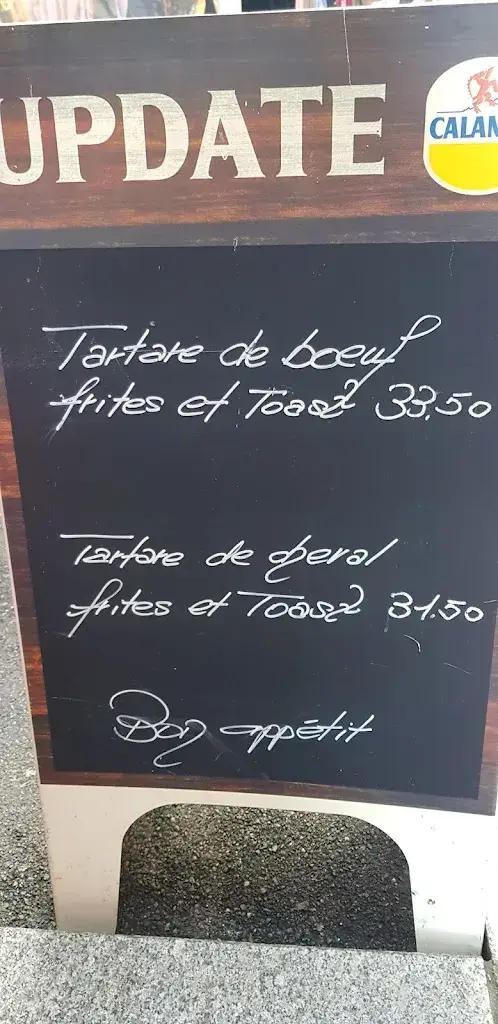 UPDATE
CALAN
Tartare de boeuf
frites et Toast 33.50
Tartare de cheval
frites et Toast 31.50
Bon appétit